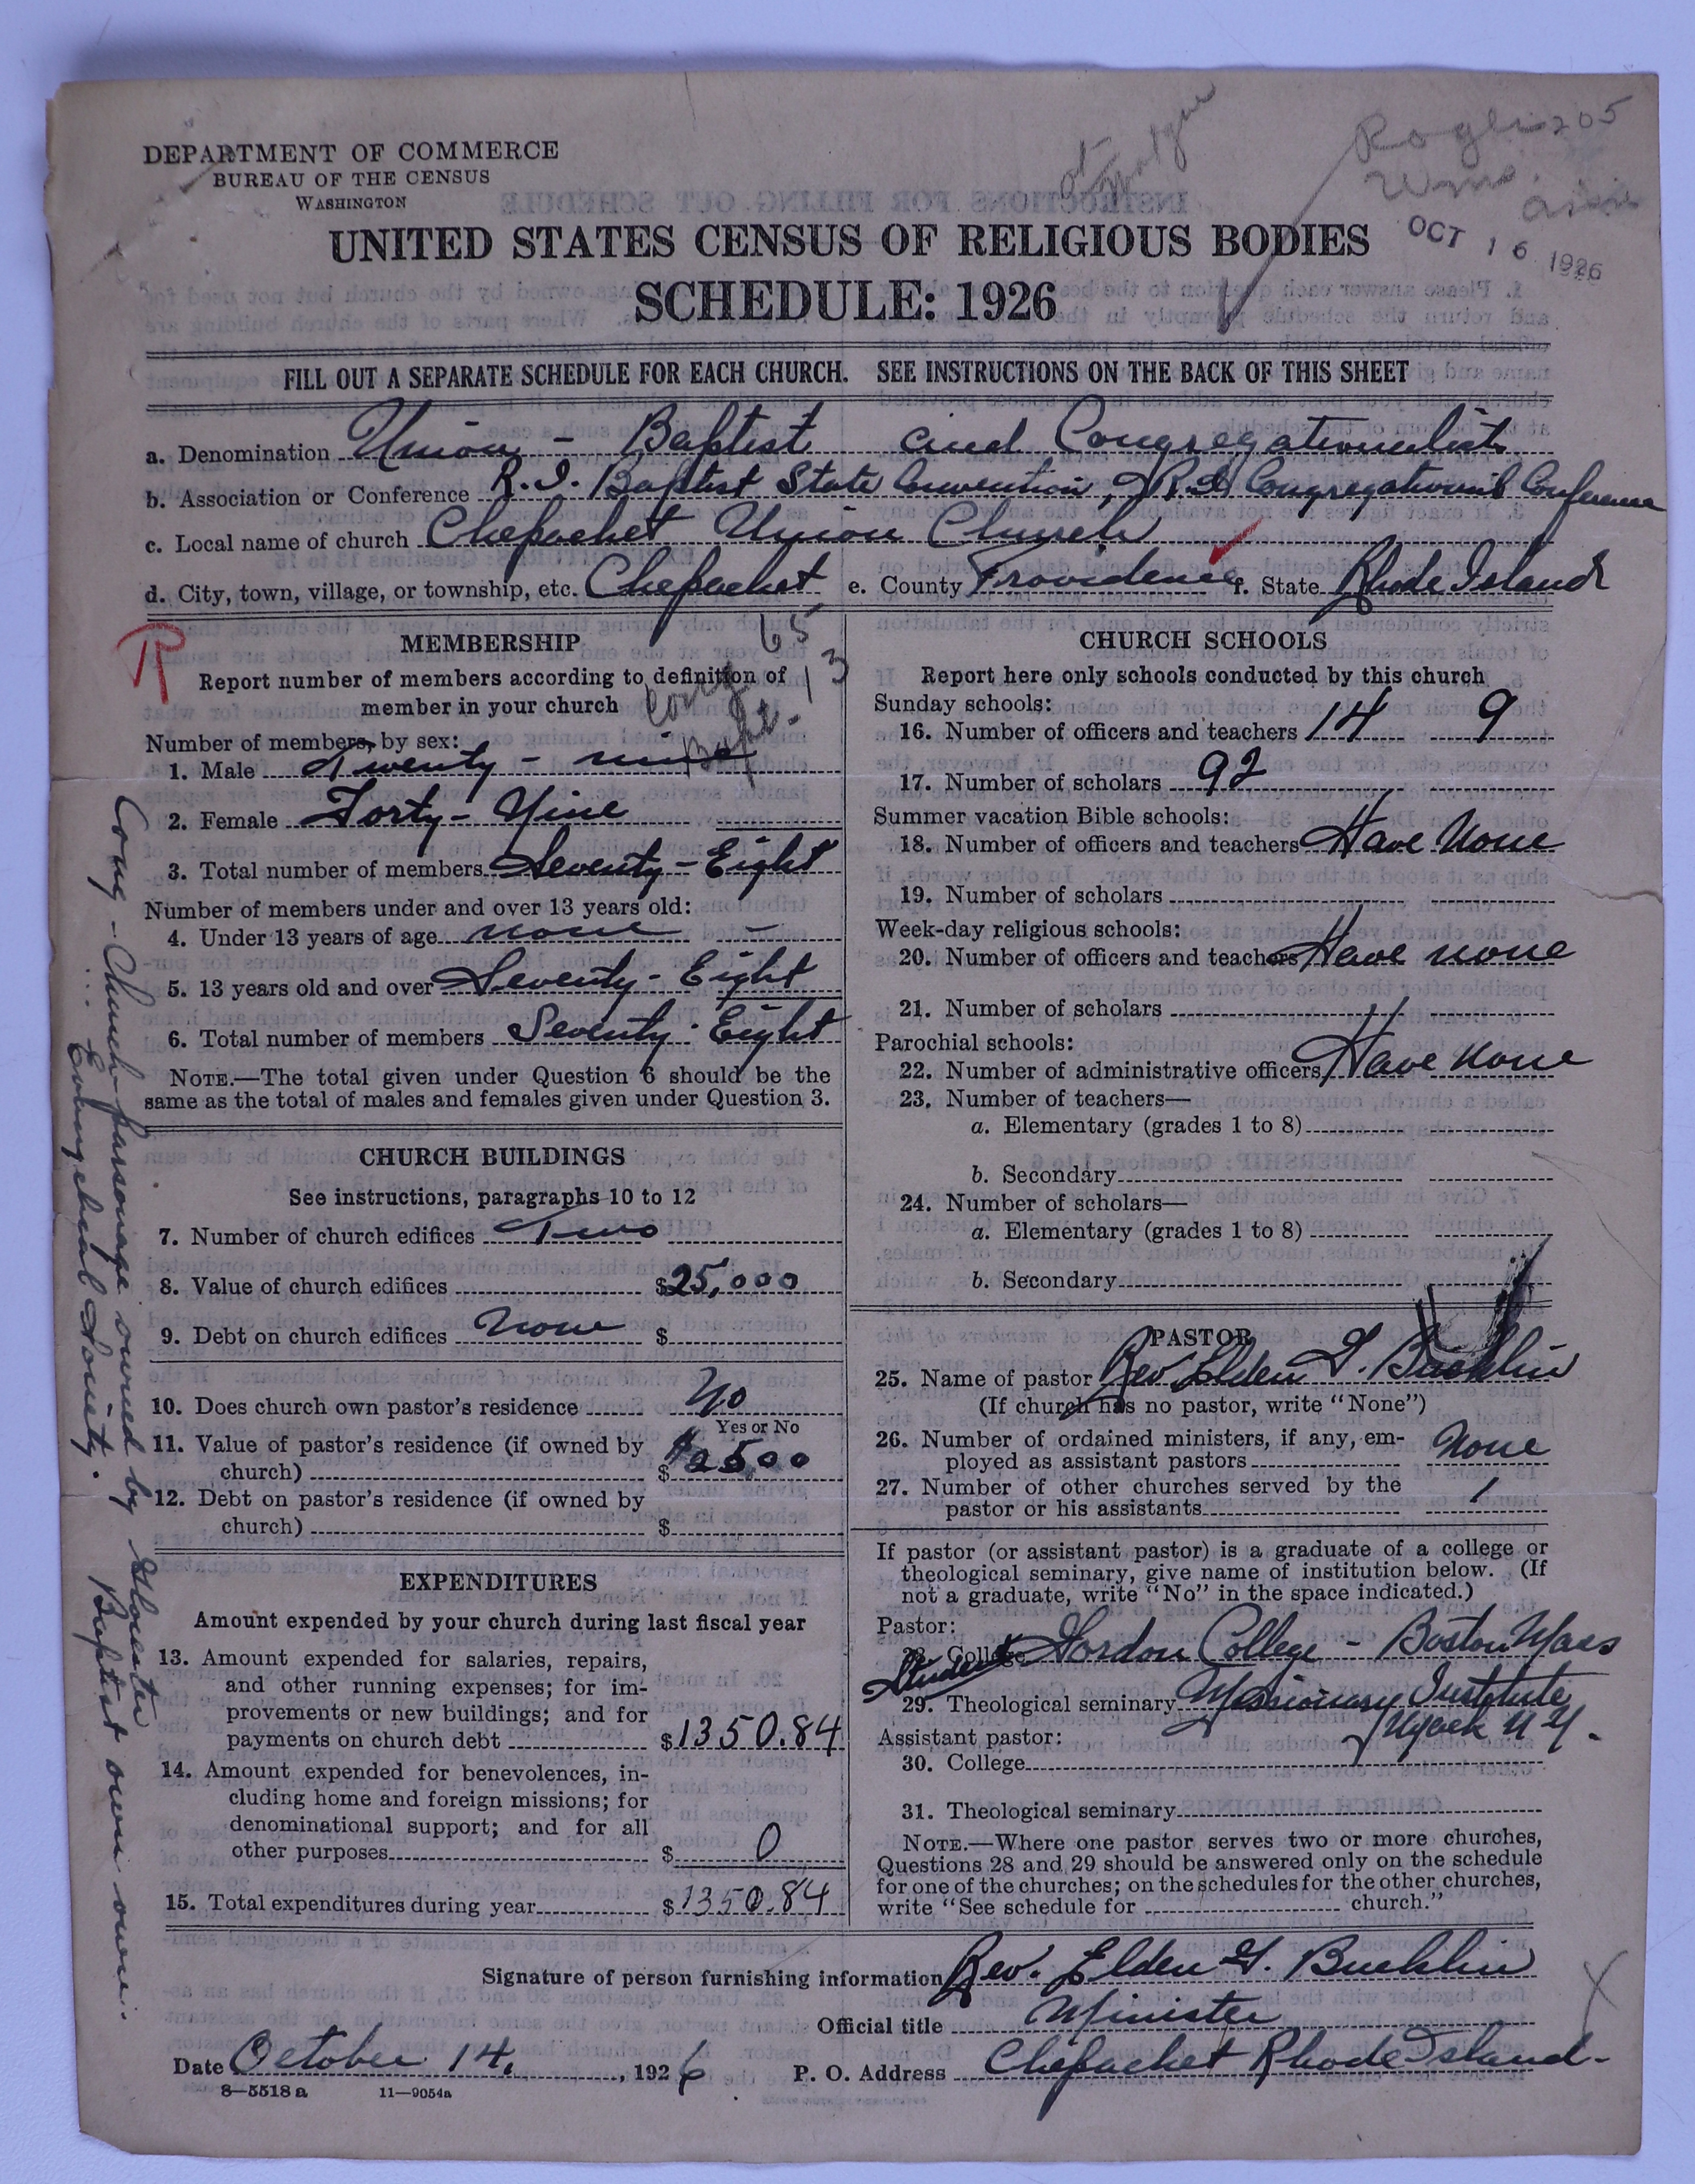 DEPARTMENT OF COMMERCE
BUREAU OF THE CENSUS
WASHINGTON
205
Wms.
OCT 16 1926
UNITED STATES CENSUS OF RELIGIOUS BODIES
SCHEDULE: 1926
FILL OUT A SEPARATE SCHEDULE FOR EACH CHURCH. SEE INSTRUCTIONS ON THE BACK OF THIS SHEET
a. Denomination Union - Baptist and Congregationalist
b. Association or Conference R.I. Baptist State Convention, R.I. Congregational Conference
c. Local name of church Chepachet Union Church
d. City, town, village, or township, etc. Chepachet e. County Providence f. State Rhode Island
R
MEMBERSHIP
Report number of members according to definition of
member in your church
Cong 65
Bapt. 13
Number of members, by sex:
1. Male Twenty - nine
2. Female Forty - Nine
3. Total number of members Seventy - Eight
Number of members under and over 13 years old:
4. Under 13 years of age none -
5. 13 years old and over Seventy - Eight
6. Total number of members Seventy - Eight
NOTE.—The total given under Question 6 should be the
same as the total of males and females given under Question 3.
CHURCH BUILDINGS
See instructions, paragraphs 10 to 12
7. Number of church edifices Two
8. Value of church edifices $25,000
9. Debt on church edifices None $
10. Does church own pastor's residence No
Yes or No
11. Value of pastor's residence (if owned by
church) $ $2500
12. Debt on pastor's residence (if owned by
church) $
EXPENDITURES
Amount expended by your church during last fiscal year
13. Amount expended for salaries, repairs,
and other running expenses; for im-
provements or new buildings; and for
payments on church debt $1350.84
14. Amount expended for benevolences, in-
cluding home and foreign missions; for
denominational support; and for all
other purposes $ 0
15. Total expenditures during year $1350.84
Cong - Church parsonage owned by Glocester
Evangelical Society. Baptist own own.
CHURCH SCHOOLS
Report here only schools conducted by this church
Sunday schools:
16. Number of officers and teachers 14 9
17. Number of scholars 92
Summer vacation Bible schools:
18. Number of officers and teachers Have None
19. Number of scholars
Week-day religious schools:
20. Number of officers and teachers Have none
21. Number of scholars
Parochial schools:
22. Number of administrative officers Have none
23. Number of teachers—
a. Elementary (grades 1 to 8)
b. Secondary
24. Number of scholars—
a. Elementary (grades 1 to 8)
b. Secondary
PASTOR
25. Name of pastor Rev. Elden G. Bucklin
(If church has no pastor, write "None")
26. Number of ordained ministers, if any, em-
ployed as assistant pastors None
27. Number of other churches served by the
pastor or his assistants 1
If pastor (or assistant pastor) is a graduate of a college or
theological seminary, give name of institution below. (If
not a graduate, write "No" in the space indicated.)
Pastor:
28. College Gordon College - Boston Mass
Student
29. Theological seminary Missionary Institute
Nyack N.Y.
Assistant pastor:
30. College
31. Theological seminary
NOTE.—Where one pastor serves two or more churches,
Questions 28 and 29 should be answered only on the schedule
for one of the churches; on the schedules for the other churches,
write "See schedule for church."
Signature of person furnishing information Rev. Elden G. Bucklin
Official title Minister
Date October 14, 1926 P. O. Address Chepachet Rhode Island-
8—5518a 11—9054a